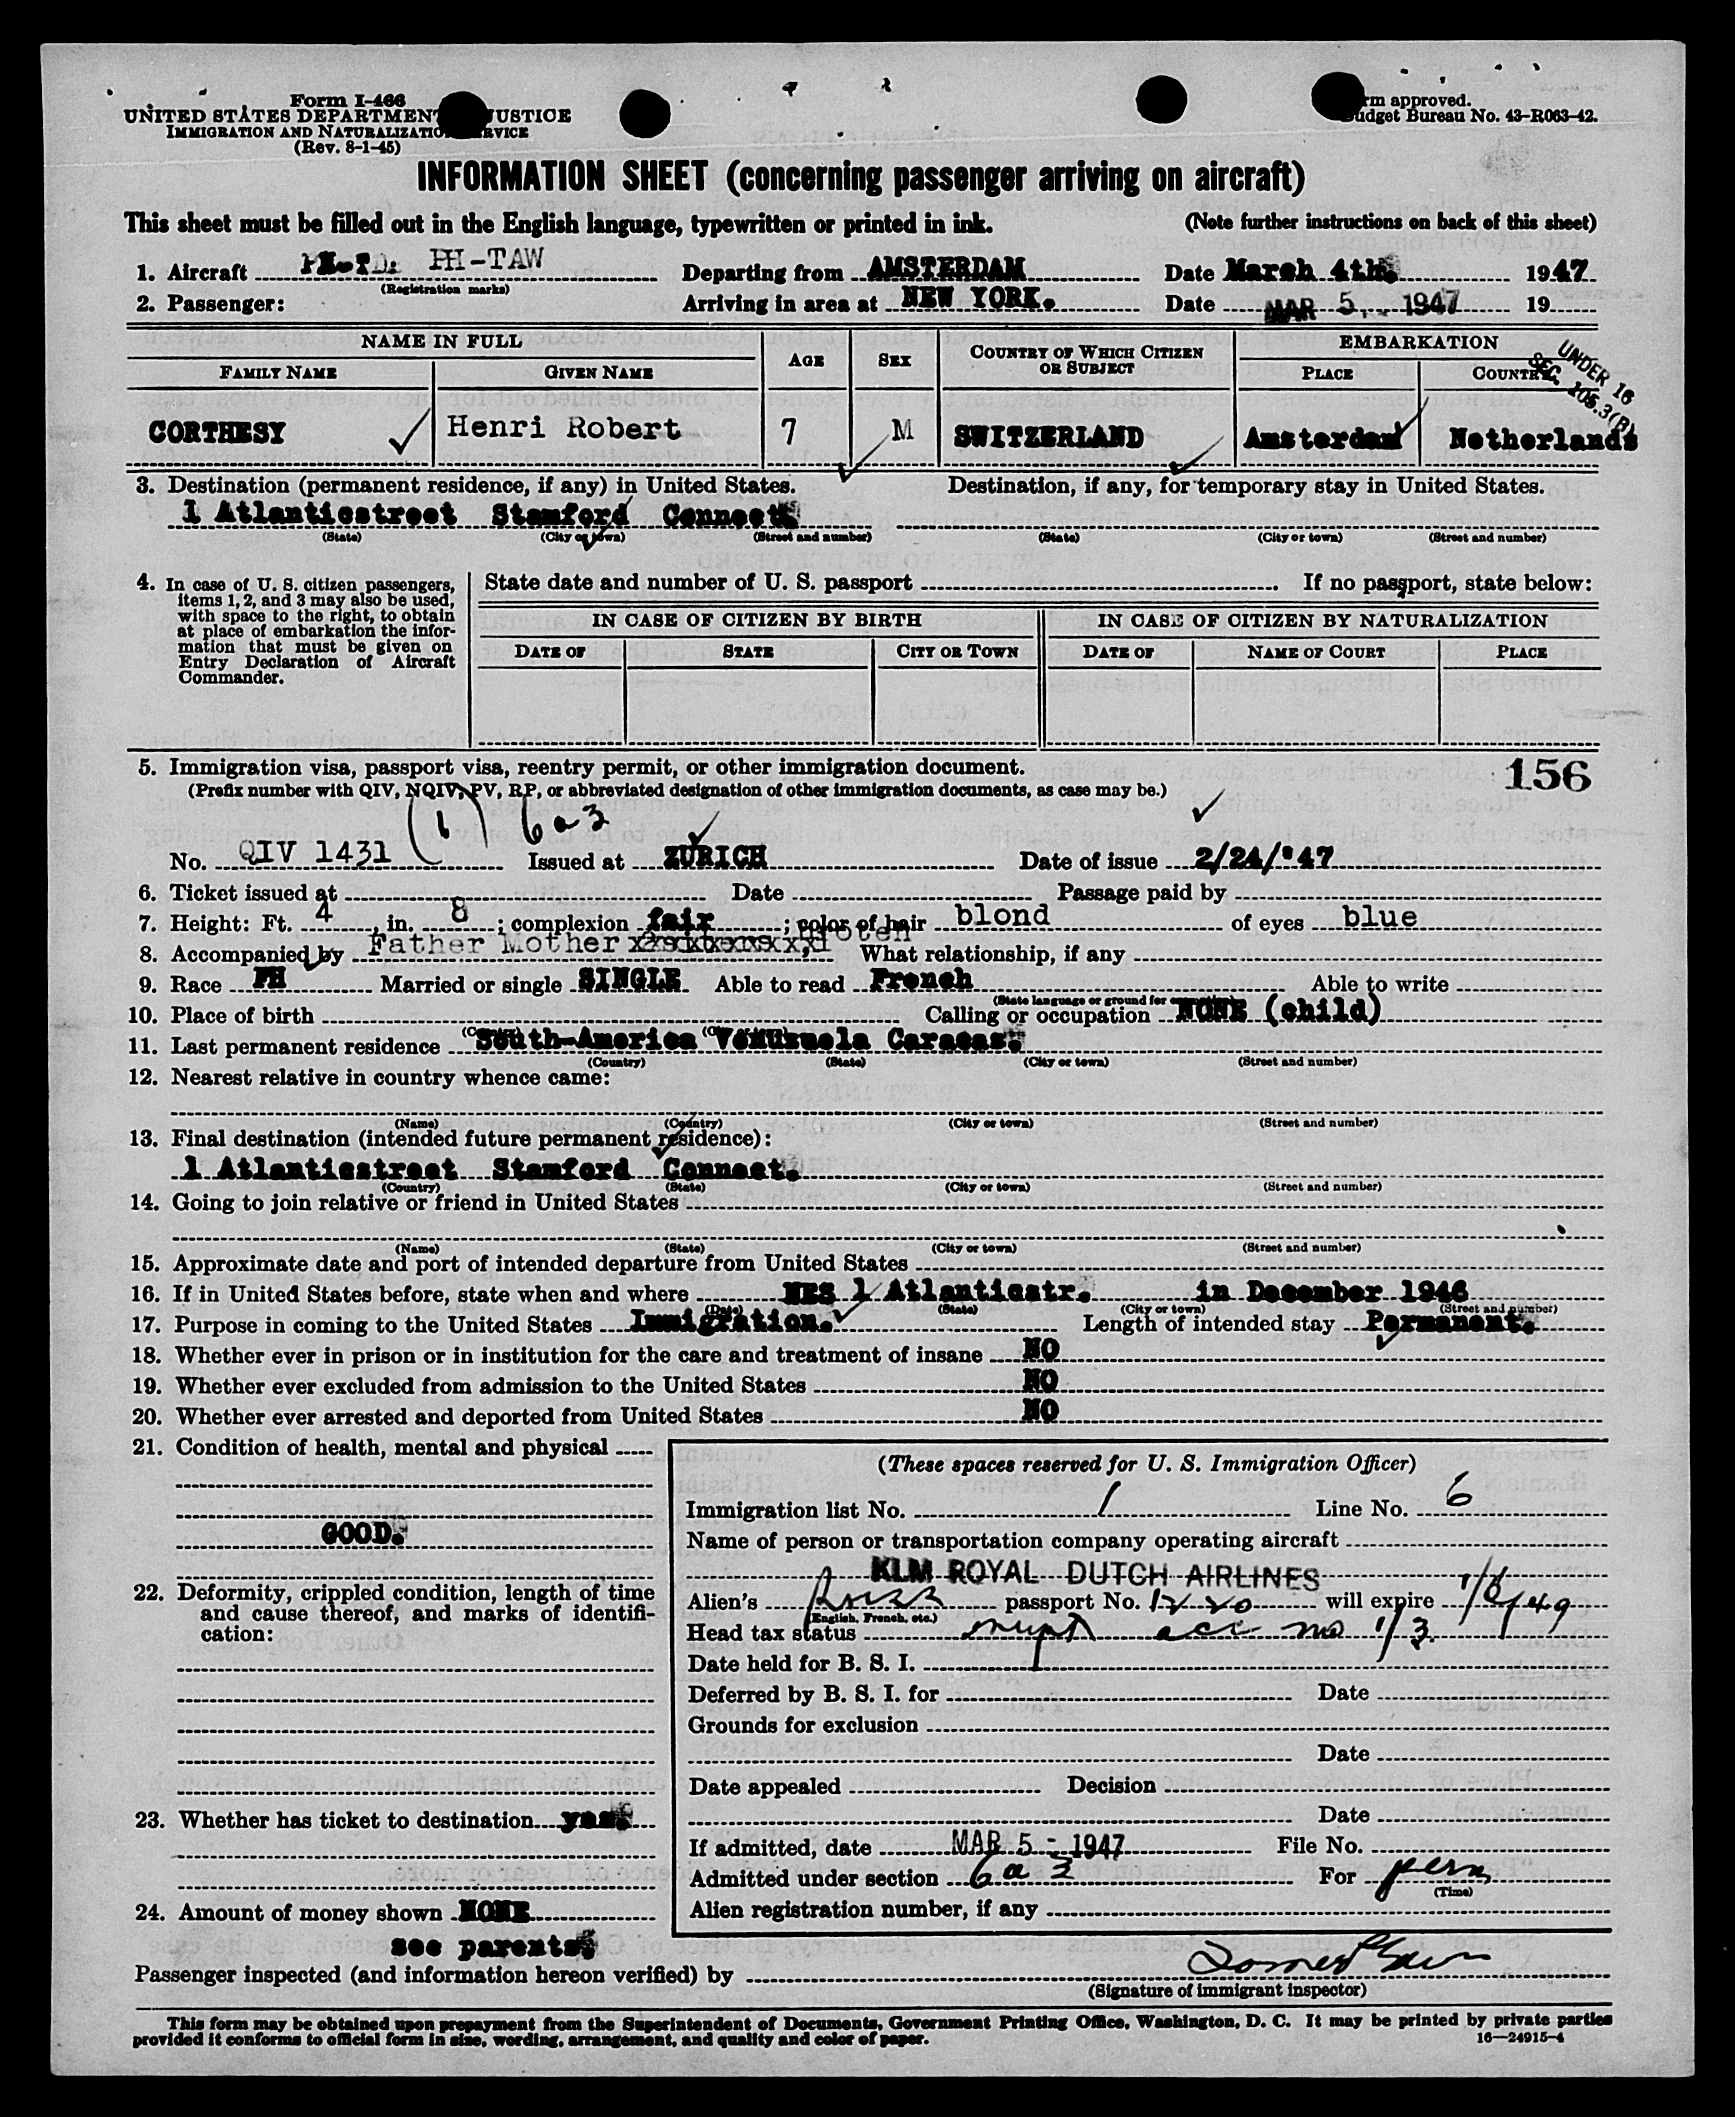 Form I-466
UNITED STATES DEPARTMENT JUSTICE
IMMIGRATION AND NATURALIZATION SERVICE
(Rev. 8-1-45)
Form approved.
Budget Bureau No. 43-R063-42.
INFORMATION SHEET (concerning passenger arriving on aircraft)
This sheet must be filled out in the English language, typewritten or printed in ink. (Note further instructions on back of this sheet)
1. Aircraft PH-TAW Departing from AMSTERDAM Date March 4th. 1947
(Registration marks)
2. Passenger: Arriving in area at NEW YORK. Date MAR 5 - 1947 19
NAME IN FULL AGE SEX COUNTRY OF WHICH CITIZEN OR SUBJECT EMBARKATION
FAMILY NAME GIVEN NAME PLACE COUNTRY
UNDER 16
SEC. 105.3(B)
CORTHESY Henri Robert 7 M SWITZERLAND Amsterdam Netherlands
3. Destination (permanent residence, if any) in United States. Destination, if any, for temporary stay in United States.
1 Atlanticstreet Stamford Connect.
(State) (City or town) (Street and number) (State) (City or town) (Street and number)
4. In case of U. S. citizen passengers, items 1, 2, and 3 may also be used, with space to the right, to obtain at place of embarkation the information that must be given on Entry Declaration of Aircraft Commander.
State date and number of U. S. passport If no passport, state below:
IN CASE OF CITIZEN BY BIRTH IN CASE OF CITIZEN BY NATURALIZATION
DATE OF STATE CITY OR TOWN DATE OF NAME OF COURT PLACE
5. Immigration visa, passport visa, reentry permit, or other immigration document. 156
(Prefix number with QIV, NQIV, PV, RP, or abbreviated designation of other immigration documents, as case may be.)
(1) 6a3
No. QIV 1431 Issued at ZURICH Date of issue 2/24/'47
6. Ticket issued at Date Passage paid by
7. Height: Ft. 4, in. 8; complexion fair; color of hair blond of eyes blue
8. Accompanied by Father Mother What relationship, if any
9. Race FH Married or single SINGLE Able to read French Able to write
(State language or ground for exemption)
10. Place of birth Calling or occupation NONE (child)
(Country) (City or town)
11. Last permanent residence South-America Venuzuela Caracas.
(Country) (State) (City or town) (Street and number)
12. Nearest relative in country whence came:
(Name) (Country) (City or town) (Street and number)
13. Final destination (intended future permanent residence):
1 Atlanticstreet Stamford Connect.
(Country) (State) (City or town) (Street and number)
14. Going to join relative or friend in United States
(Name) (State) (City or town) (Street and number)
15. Approximate date and port of intended departure from United States
16. If in United States before, state when and where YES 1 Atlanticstr. in December 1946
(Date) (State) (City or town) (Street and number)
17. Purpose in coming to the United States Immigration. Length of intended stay Permanent.
18. Whether ever in prison or in institution for the care and treatment of insane NO
19. Whether ever excluded from admission to the United States NO
20. Whether ever arrested and deported from United States NO
21. Condition of health, mental and physical
GOOD.
22. Deformity, crippled condition, length of time and cause thereof, and marks of identification:
23. Whether has ticket to destination yes.
24. Amount of money shown NONE
see parents
(These spaces reserved for U. S. Immigration Officer)
Immigration list No. 1 Line No. 6
Name of person or transportation company operating aircraft
KLM ROYAL DUTCH AIRLINES
Alien's passport No. will expire 1/6/49
(English, French, etc.)
Head tax status 1/3
Date held for B. S. I.
Deferred by B. S. I. for Date
Grounds for exclusion
Date
Date appealed Decision
Date
If admitted, date MAR 5 - 1947 File No.
Admitted under section 6a3 For perm
(Time)
Alien registration number, if any
Passenger inspected (and information hereon verified) by
(Signature of immigrant inspector)
This form may be obtained upon prepayment from the Superintendent of Documents, Government Printing Office, Washington, D. C. It may be printed by private parties
provided it conforms to official form in size, wording, arrangement, and quality and color of paper. 16—24915-4